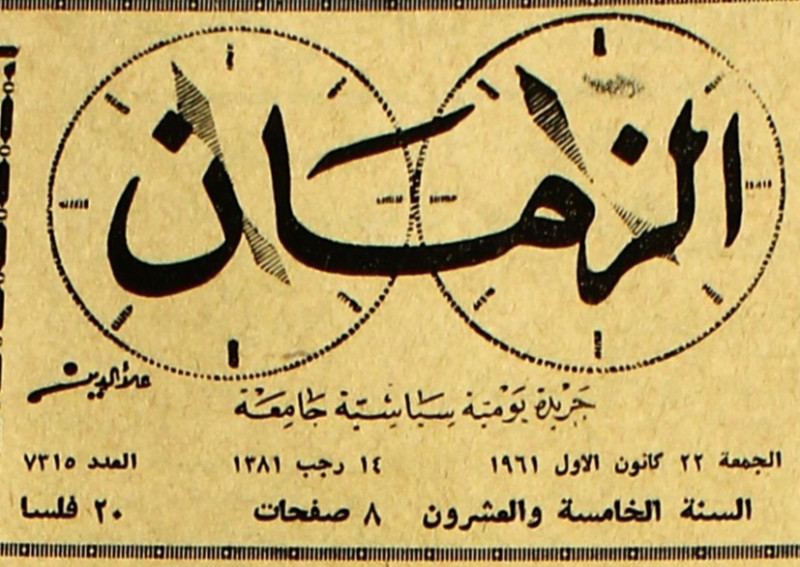 الزمان
علاءالدين
جريدة يومية سياسية جامعة
الجمعة ٢٢ كانون الاول ١٩٦١ ١٤ رجب ١٣٨١ العدد ٧٣١٥
السنة الخامسة والعشرون ٨ صفحات ٢٠ فلسا